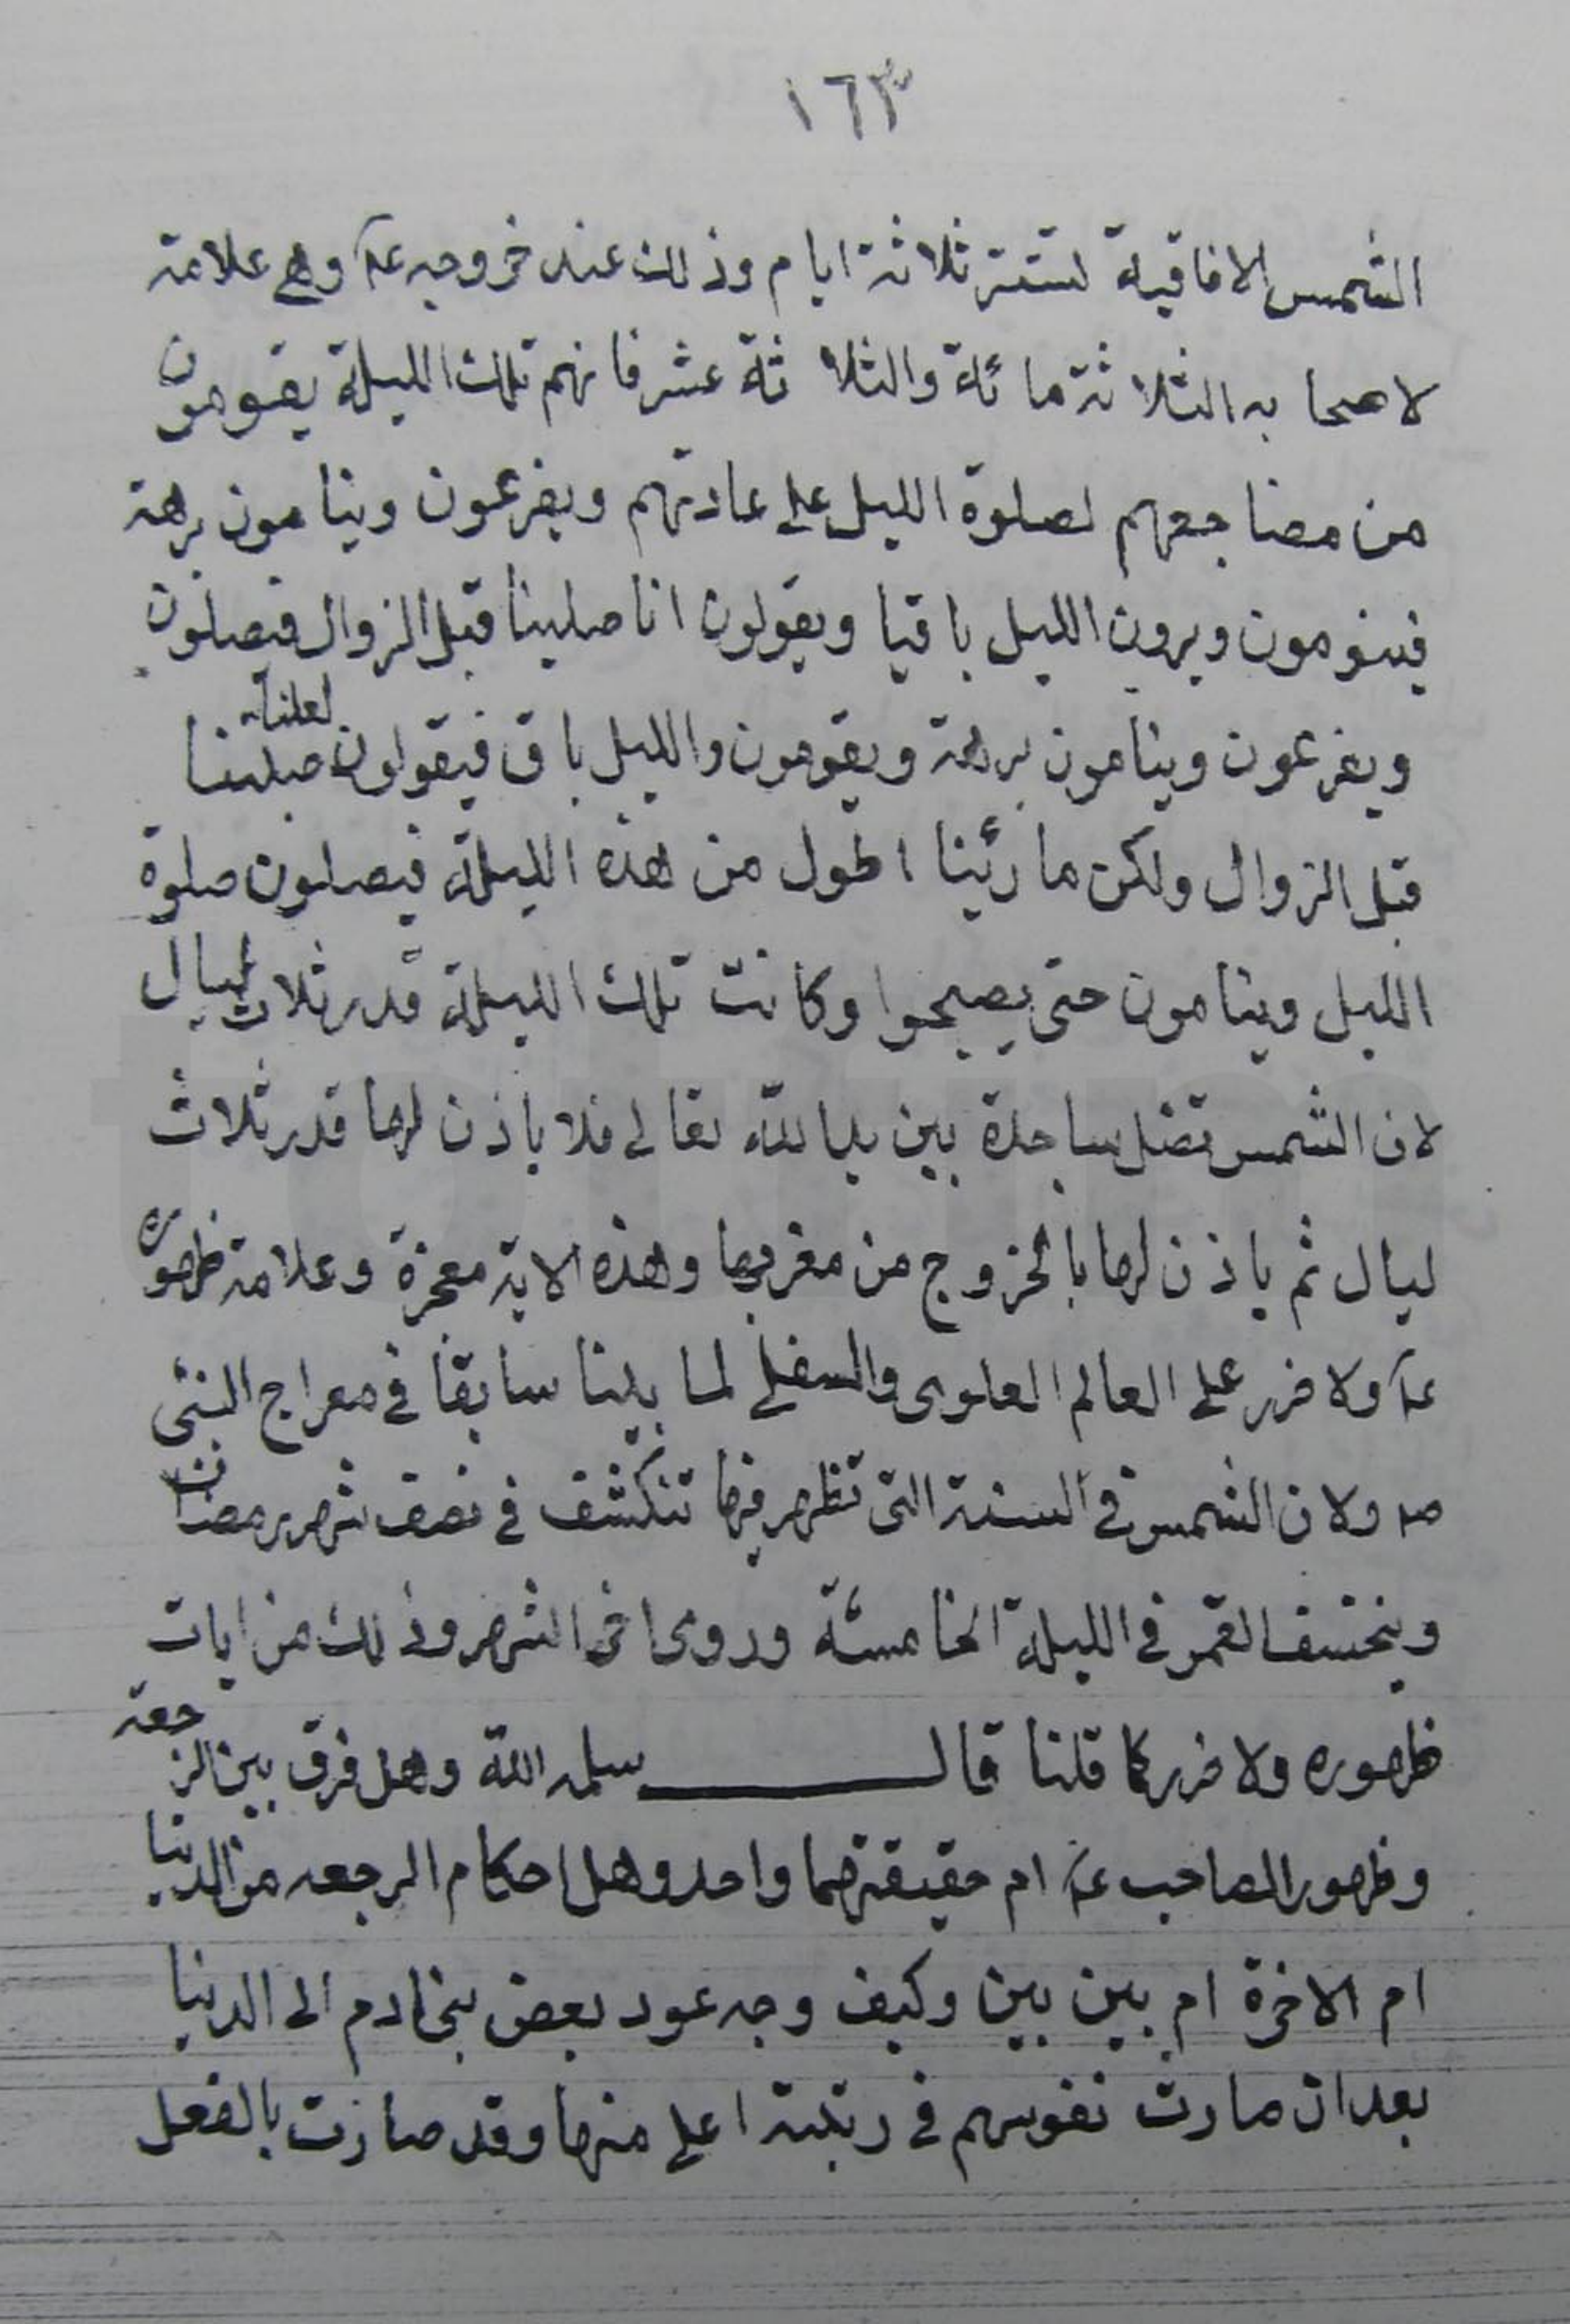 ١٦٣
الشمس الافاقية تستتر ثلاثة ايام وذلك عند خروجه عـ وهى علامة
لاصحابه الثلاثة مائة والثلاثة عشر فانهم تلك الليلة يقومون
من مضاجعهم لصلوة الليل على عادتهم ويفرغون وينامون برهة
فيقومون ويرون الليل باقيا ويقولون انا صلينا قبل الزوال فيصلون
ويفرغون وينامون برهة ويقومون والليل باق فيقولون لعلنا صلينا
قبل الزوال ولكن ما رئينا اطول من هذه الليلة فيصلون صلوة
الليل وينامون حتى يصبحوا وكانت تلك الليلة قدر ثلاث ليال
لان الشمس تضل ساجدة بين يدا لله تعالى فلا ياذن لها قدر ثلاث
ليال ثم ياذن لها بالخروج من مغربها وهذه الاية معجزة وعلامة ظهوره
عـ ولا ضرر على العالم العلوى والسفلى لما بينا سابقا فى معراج النبى
صـ ولان الشمس فى السنة التى تظهر فيها تنكشف فى نصف شهر رمضان
وينخسف القمر فى الليلة الخامسة وروى اخر الشهر وذلك من ايات
ظهوره ولا ضرر كما قلنا قال سلمه الله وهل فرق بين الرجعة
وظهور الصاحب عـ ام حقيقتهما واحد وهل احكام الرجعه من الدنيا
ام الاخرة ام بين بين وكيف وجه عود بعض بنى ادم الى الدنيا
بعد ان صارت نفوسهم فى رتبة اعلى منها وقد صارت بالفعل